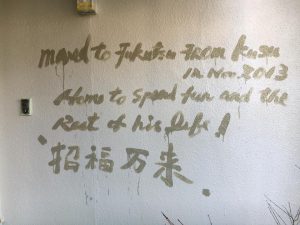 moved to Fukutsu From
in Nov. 2013
Home to Spend fun and the
Rest of his Life!
招福万来